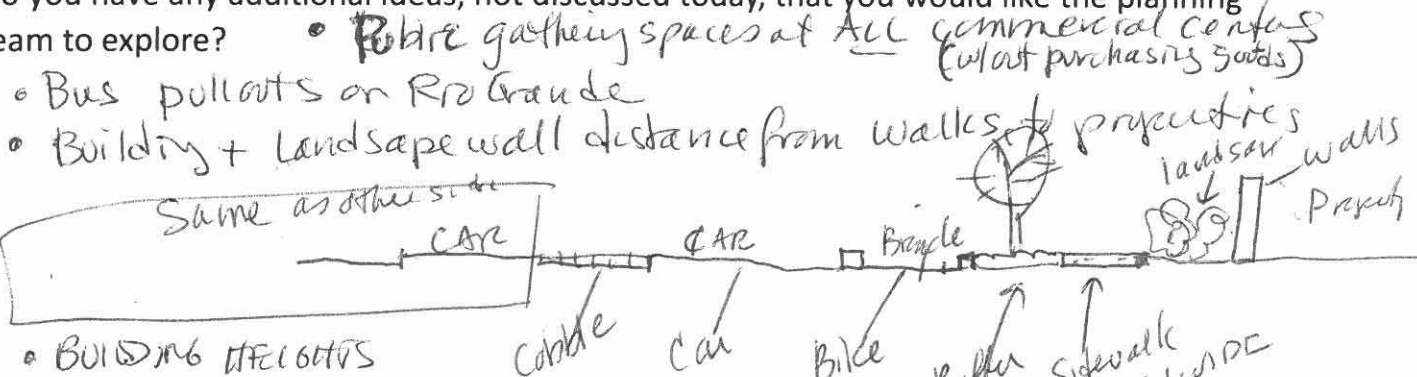 o you have any additional ideas, not discussed today, that you would like the planning
eam to explore? • Public gathering spaces at ALL commercial centers
(w/out purchasing goods)
• Bus pullouts on Rio Grande
• Building + Landsape wall distance from walks to properties
landscape walls
Same as other side
Property
CAR CAR Bicycle
• BUILDING HEIGHTS
Cobble Car Bike Sidewalk